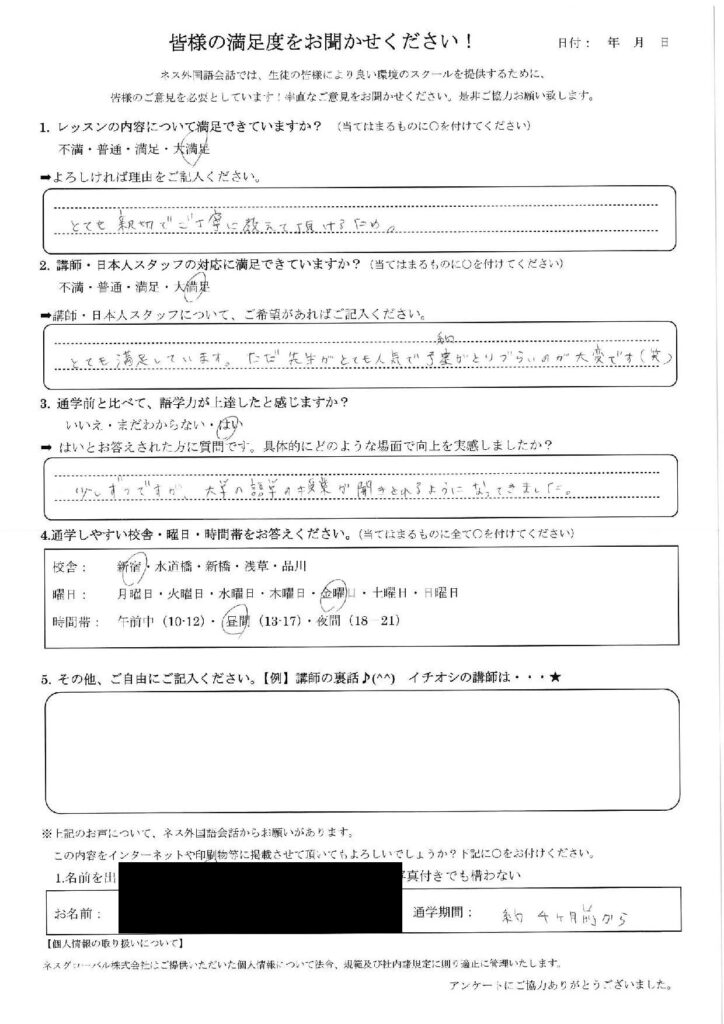 皆様の満足度をお聞かせください！
日付： 年 月 日
ネス外国語会話では、生徒の皆様により良い環境のスクールを提供するために、
皆様のご意見を必要としています！率直なご意見をお聞かせください。是非ご協力お願い致します。
1. レッスンの内容について満足できていますか？ （当てはまるものに○を付けてください）
不満・普通・満足・大満足
➡よろしければ理由をご記入ください。
とても親切でご丁寧に教えて頂けるため。
2. 講師・日本人スタッフの対応に満足できていますか？（当てはまるものに○を付けてください）
不満・普通・満足・大満足
➡講師・日本人スタッフについて、ご希望があればご記入ください。
とても満足しています。ただ先生がとても人気で予約がとりづらいのが大変です（笑）
3. 通学前と比べて、語学力が上達したと感じますか？
いいえ・まだわからない・はい
➡ はいとお答えされた方に質問です。具体的にどのような場面で向上を実感しましたか？
少しずつですが、大学の語学の授業が聞きとれるようになってきました。
4.通学しやすい校舎・曜日・時間帯をお答えください。（当てはまるものに全て○を付けてください）
校舎： 新宿・水道橋・新橋・浅草・品川
曜日： 月曜日・火曜日・水曜日・木曜日・金曜日・土曜日・日曜日
時間帯： 午前中（10-12）・昼間（13-17）・夜間（18－21）
5. その他、ご自由にご記入ください。【例】講師の裏話♪(^^) イチオシの講師は・・・★
※上記のお声について、ネス外国語会話からお願いがあります。
この内容をインターネットや印刷物等に掲載させて頂いてもよろしいでしょうか？下記に○をお付けください。
1.名前を出 真付きでも構わない
お名前： 通学期間： 約 4ヶ月前から
【個人情報の取り扱いについて】
ネスグローバル株式会社はご提供いただいた個人情報について法令、規範及び社内諸規定に則り適正に管理いたします。
アンケートにご協力ありがとうございました。